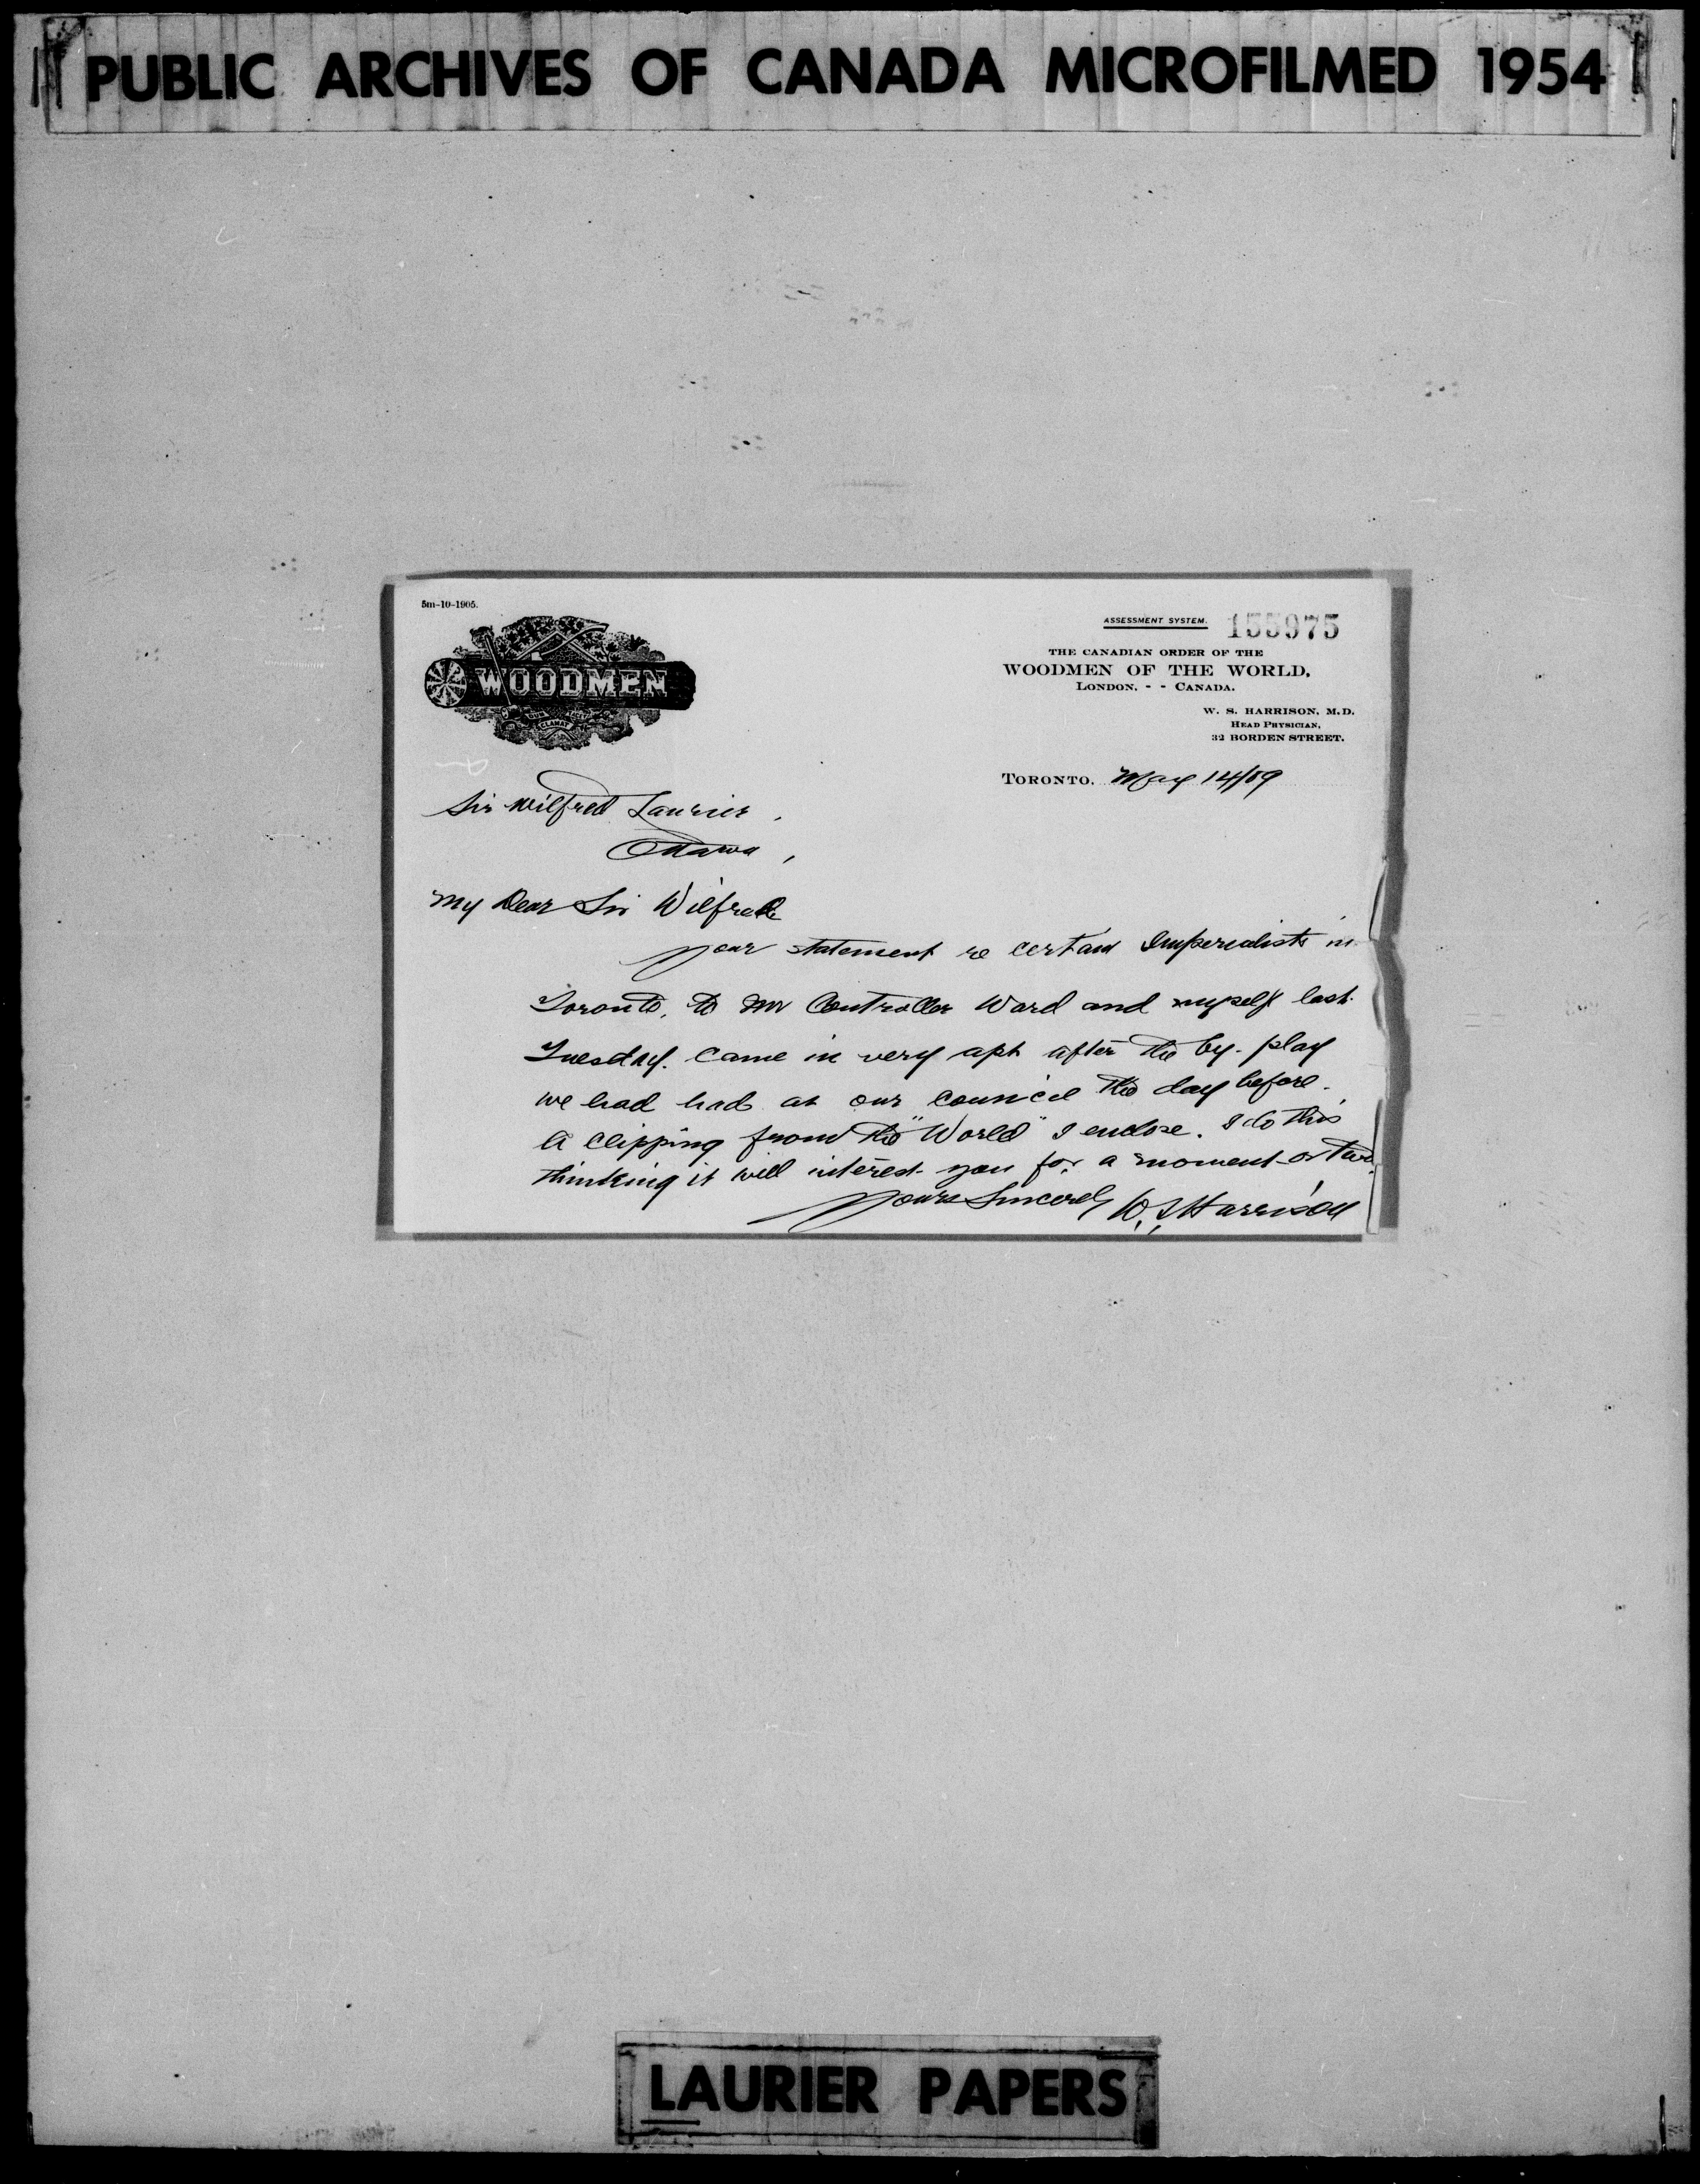 PUBLIC ARCHIVES OF CANADA MICROFILMED 1954
5m-10-1905.
WOODMEN
CLAMAT
ASSESSMENT SYSTEM. 155975
THE CANADIAN ORDER OF THE
WOODMEN OF THE WORLD,
LONDON, - - CANADA.
W. S. HARRISON, M.D.
HEAD PHYSICIAN,
32 BORDEN STREET.
TORONTO, May 14/09
Sir Wilfred Laurier,
Ottawa,
My Dear Sir Wilfred
Your statement re certain Imperialists in
Toronto, to Mr Controller Ward and myself last
Tuesday. came in very apt after the by-play
we had had at our council the day before.
A clipping from the "World" I enclose. I do this
thinking it will interest you for a moment or two.
Yours Sincerely W. S Harrison
LAURIER PAPERS